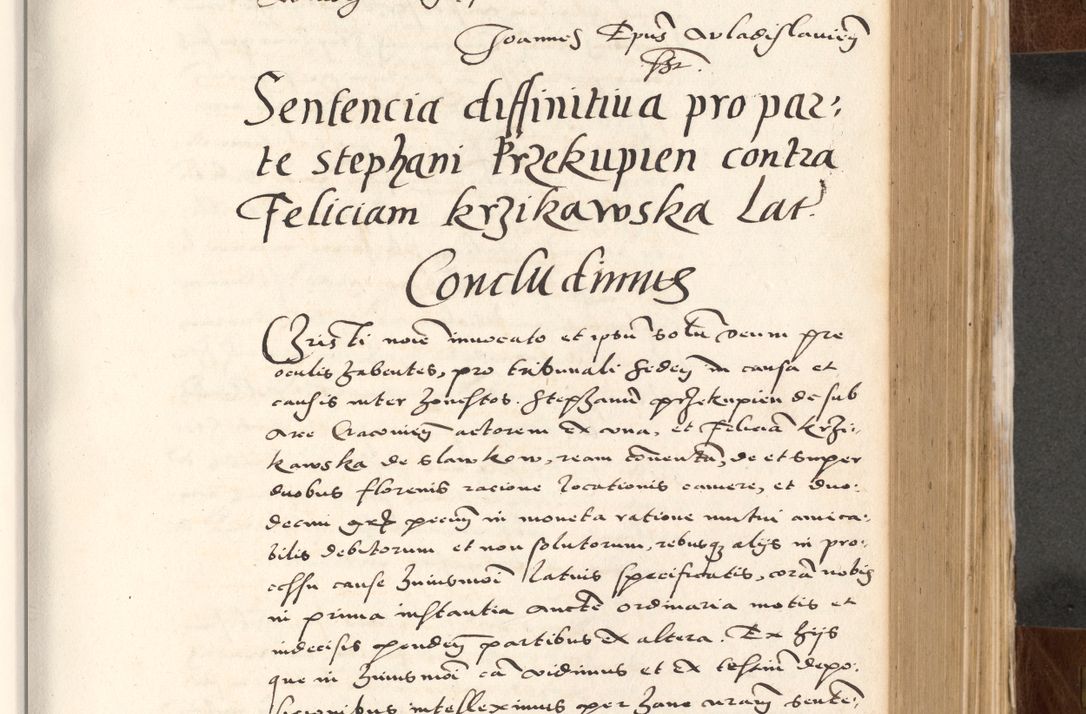 Joannes Epus Wladislauien
Sentencia diffinitiua pro par-
te stephani Przekupien contra
Feliciam krzikawska Lat:
Concludimus
Christi noie inuocato et ipsum solum deum pre
oculis habentes, pro tribunali seden in causa et
causis inter honestos. Stephanum przekupien de sub
arce Cracouien actorem ex vna, et Feliciam krzi-
kawska de slawkow, ream conuentam, de et super
duobus florenis racione locationis camere, et duo-
decim gr pecun in moneta ratione mutui amica-
bilis debitorum et non solutorum, rebusq alijs in pro-
cessu cause huiusmoi latius specificatis, coram nobis
in prima instantia aucte ordinaria motis et
indecisis penden partibus ex altera. Ex hijs
que in huiusmoi ca vidimus et ex testium depo-
sicionibus intelleximus per hanc nram senten-